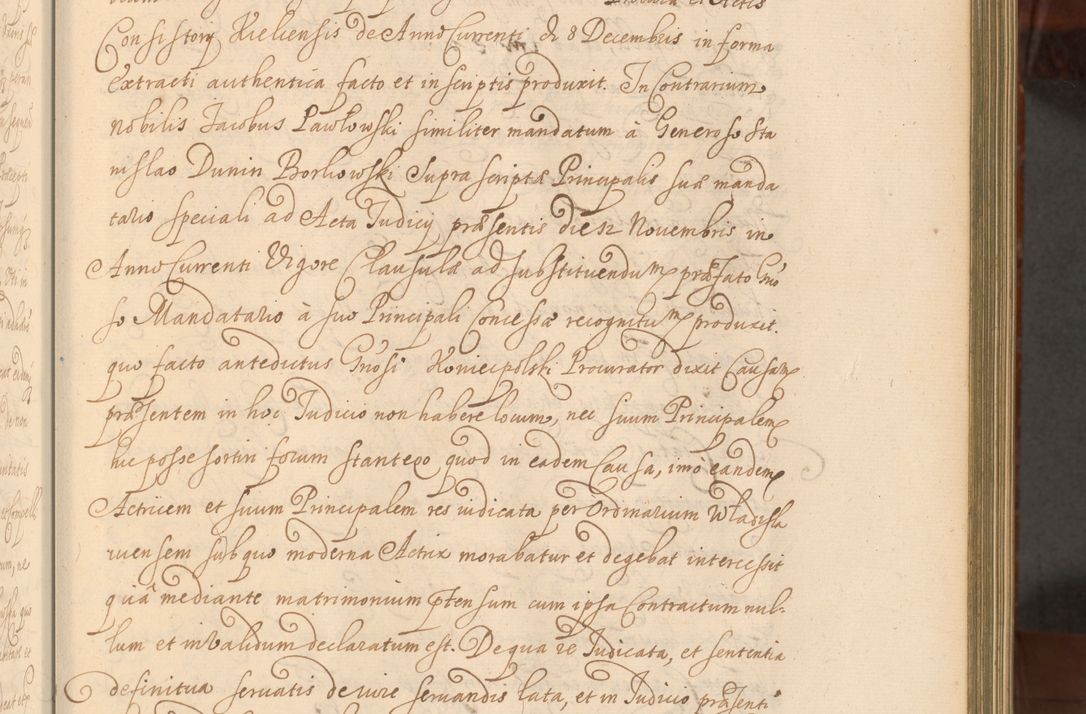 Consistorij Kielicensis de Anno Currenti d 8 Decembris in forma
extracti authentica facto et in scriptis produxit. In Contrarium
Nobilis Jacobus Pawłowski similiter mandatum à Generoso Sta
nislao Dunin Borkowski supra scriptæ Principalis suæ manda
tario speciali ad Acta Judicij præsentis die 12 Novembris in
Anno Currenti Vigore Clausulæ ad substituendum præfato Gño
so Mandatario à suo Principali Concessæ recognitum produxit.
quo facto antedictus Gñosi Koniecpolski Procurator dixit Causam
præsentem in hoc Judicio non habere locum, nec suum Principalem
hic posse sortiri forum stante eo quod in eadem Causa, imò eandem
Actricem et suum Principalem res iudicata per Ordinarium Wladisla
viensem sub quo moderna Actrix morabatur et degebat intercessit
quâ mediante matrimonium ptensum cum ipsa Contractum nul-
lum et invalidum declaratum est. De qua re Judicata, et sententia
definitiva servatis de iure servandis lata, et in Judicio præsenti